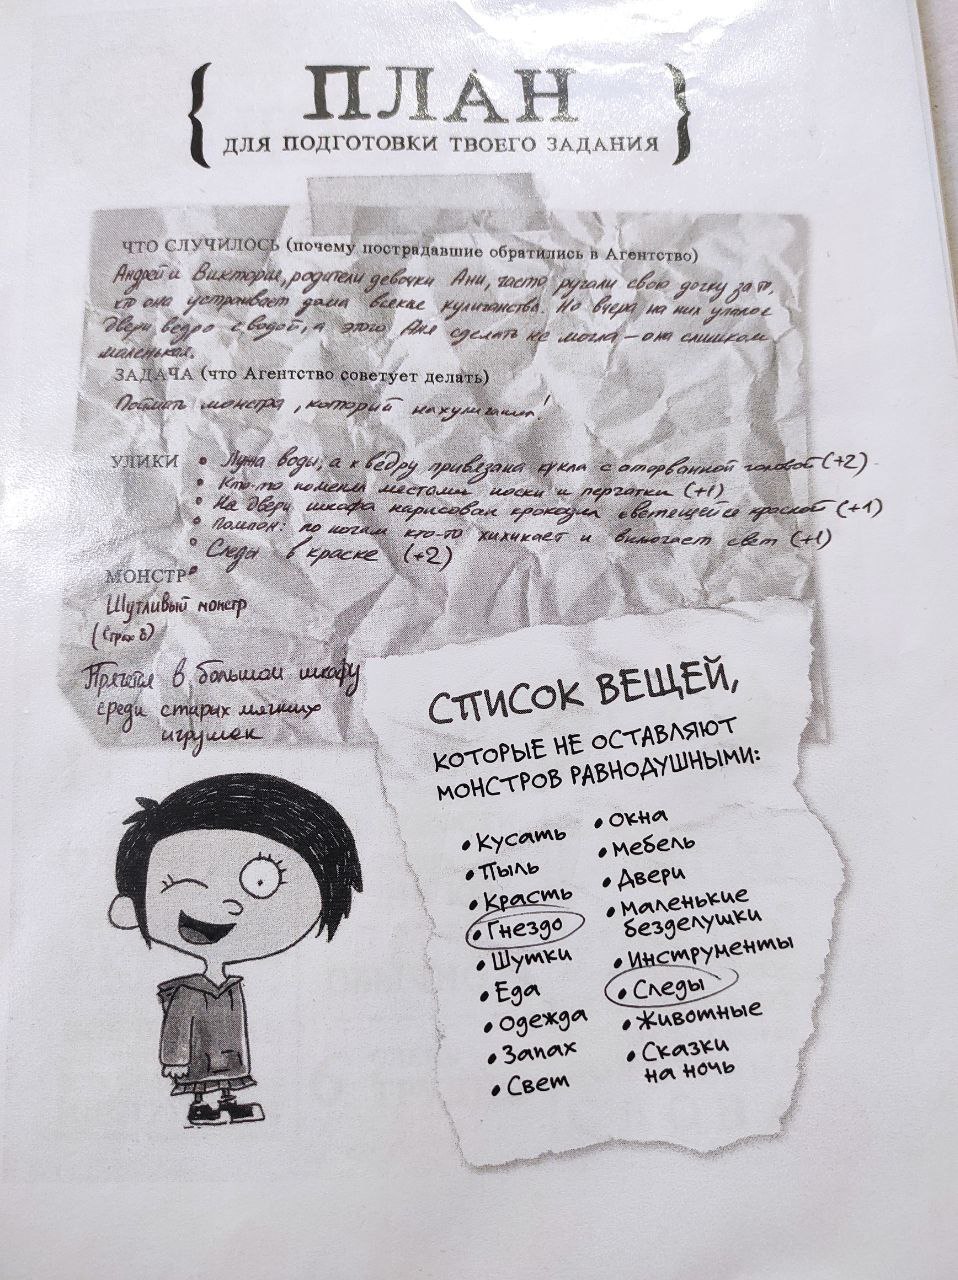 ПЛАН
ДЛЯ ПОДГОТОВКИ ТВОЕГО ЗАДАНИЯ
ЧТО СЛУЧИЛОСЬ (почему пострадавшие обратились в Агентство)
Андрей и Виктория, родители девочки Ани, часто ругали свою дочку за то,
что она устраивает дома всякие хулиганства. Но вчера на них упало с
двери ведро с водой, а этого Аня сделать не могла – она слишком
маленькая.
ЗАДАЧА (что Агентство советует делать)
Поймать монстра, который нахулиганил!
УЛИКИ • Лужа воды, а к ведру привязана кукла с оторванной головой (+2)
• Кто-то поменял местами носки и перчатки (+1)
• На двери шкафа нарисован крокодил светящейся краской (+1)
• по ночам кто-то хихикает и включает свет (+1)
• Следы в краске (+2)
МОНСТР
Шутливый монстр
(Страх 8)
Прячется в большом шкафу
среди старых мягких
игрушек
СПИСОК ВЕЩЕЙ,
КОТОРЫЕ НЕ ОСТАВЛЯЮТ
МОНСТРОВ РАВНОДУШНЫМИ:
• Кусать
• Пыль
• Красть
• Гнездо
• Шутки
• Еда
• Одежда
• Запах
• Свет
• Окна
• Мебель
• Двери
• Маленькие
безделушки
• Инструменты
• Следы
• Животные
• Сказки
на ночь